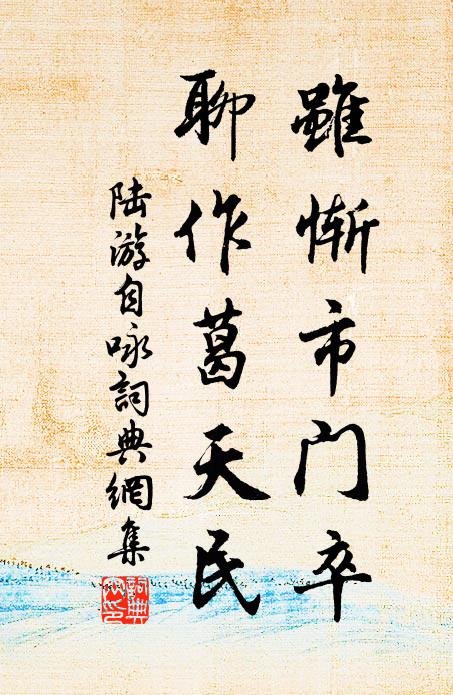 雖惭市门卒
聊作葛天民
陆游自咏詞典網集
詞典